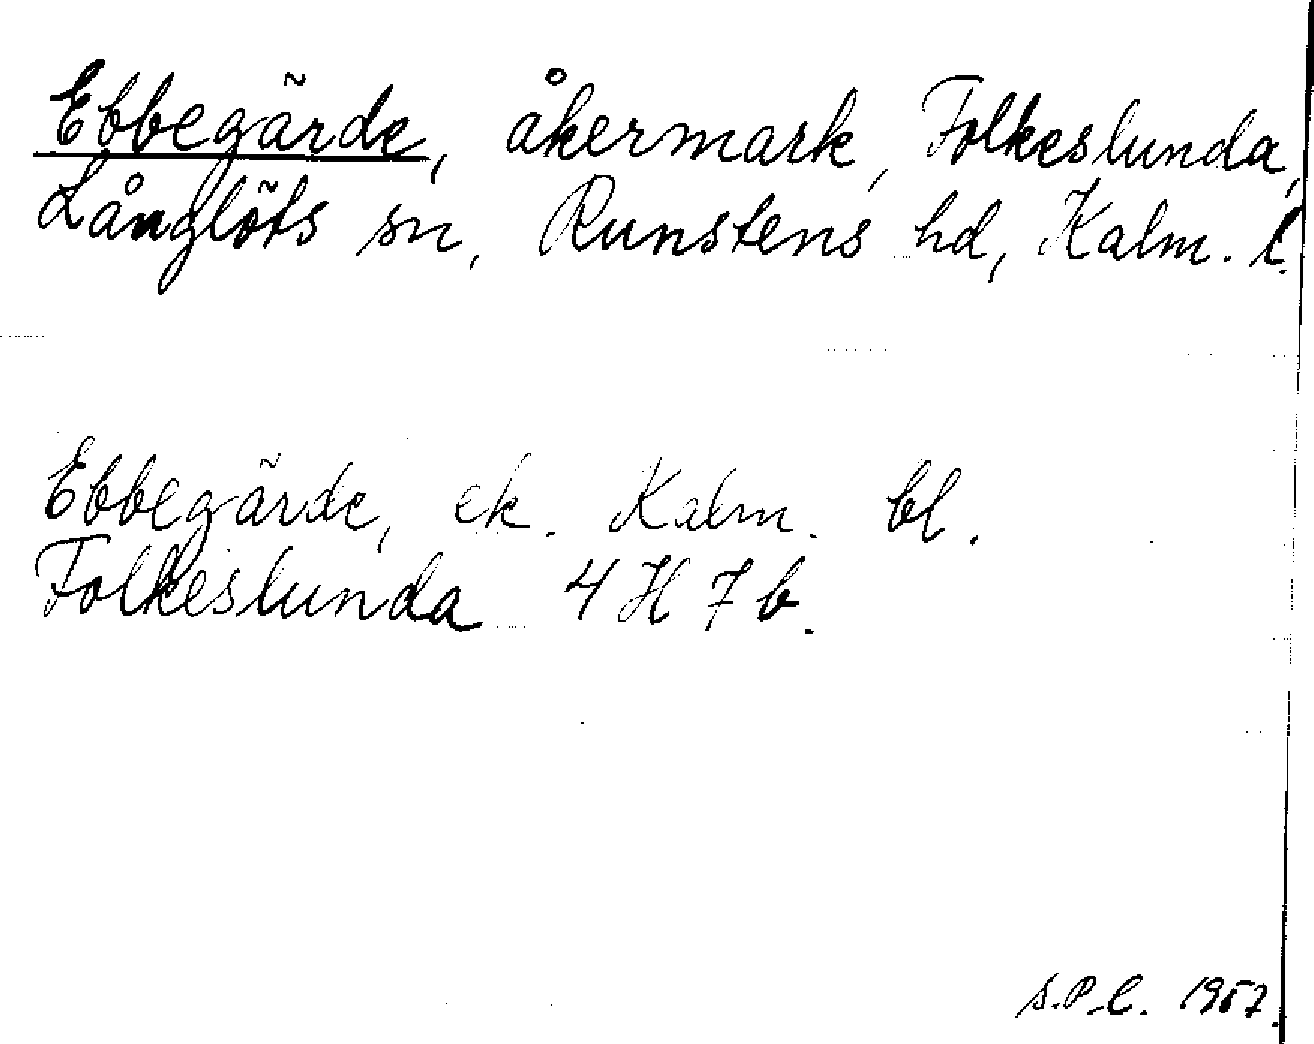 Ebbegärde, åkermark, Folkeslunda,
Långlöts sn, Runstens hd, Kalm. l.
Ebbegärde, ek. Kalm. bl.
Folkeslunda 4 H 7 b.
S.P.C. 1957.